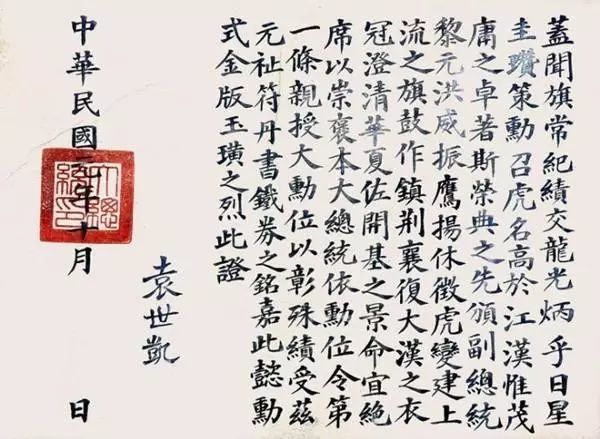 蓋聞旗常紀績交龍光炳乎日星
圭瓚策勳召虎名高於江漢惟茂
庸之卓著斯榮典之先頒副總統
黎元洪威振鷹揚休徵虎變建上
流之旗鼓作鎮荆襄復大漢之衣
冠澄清華夏佐開基之景命宜絶
席以崇褒本大總統依勳位令第
一條親授大勳位以彰殊績受茲
元祉符丹書鐵券之銘嘉此懿勳
式金版玉璜之烈此證
袁世凱
中華民國二年十月 日
大總統印